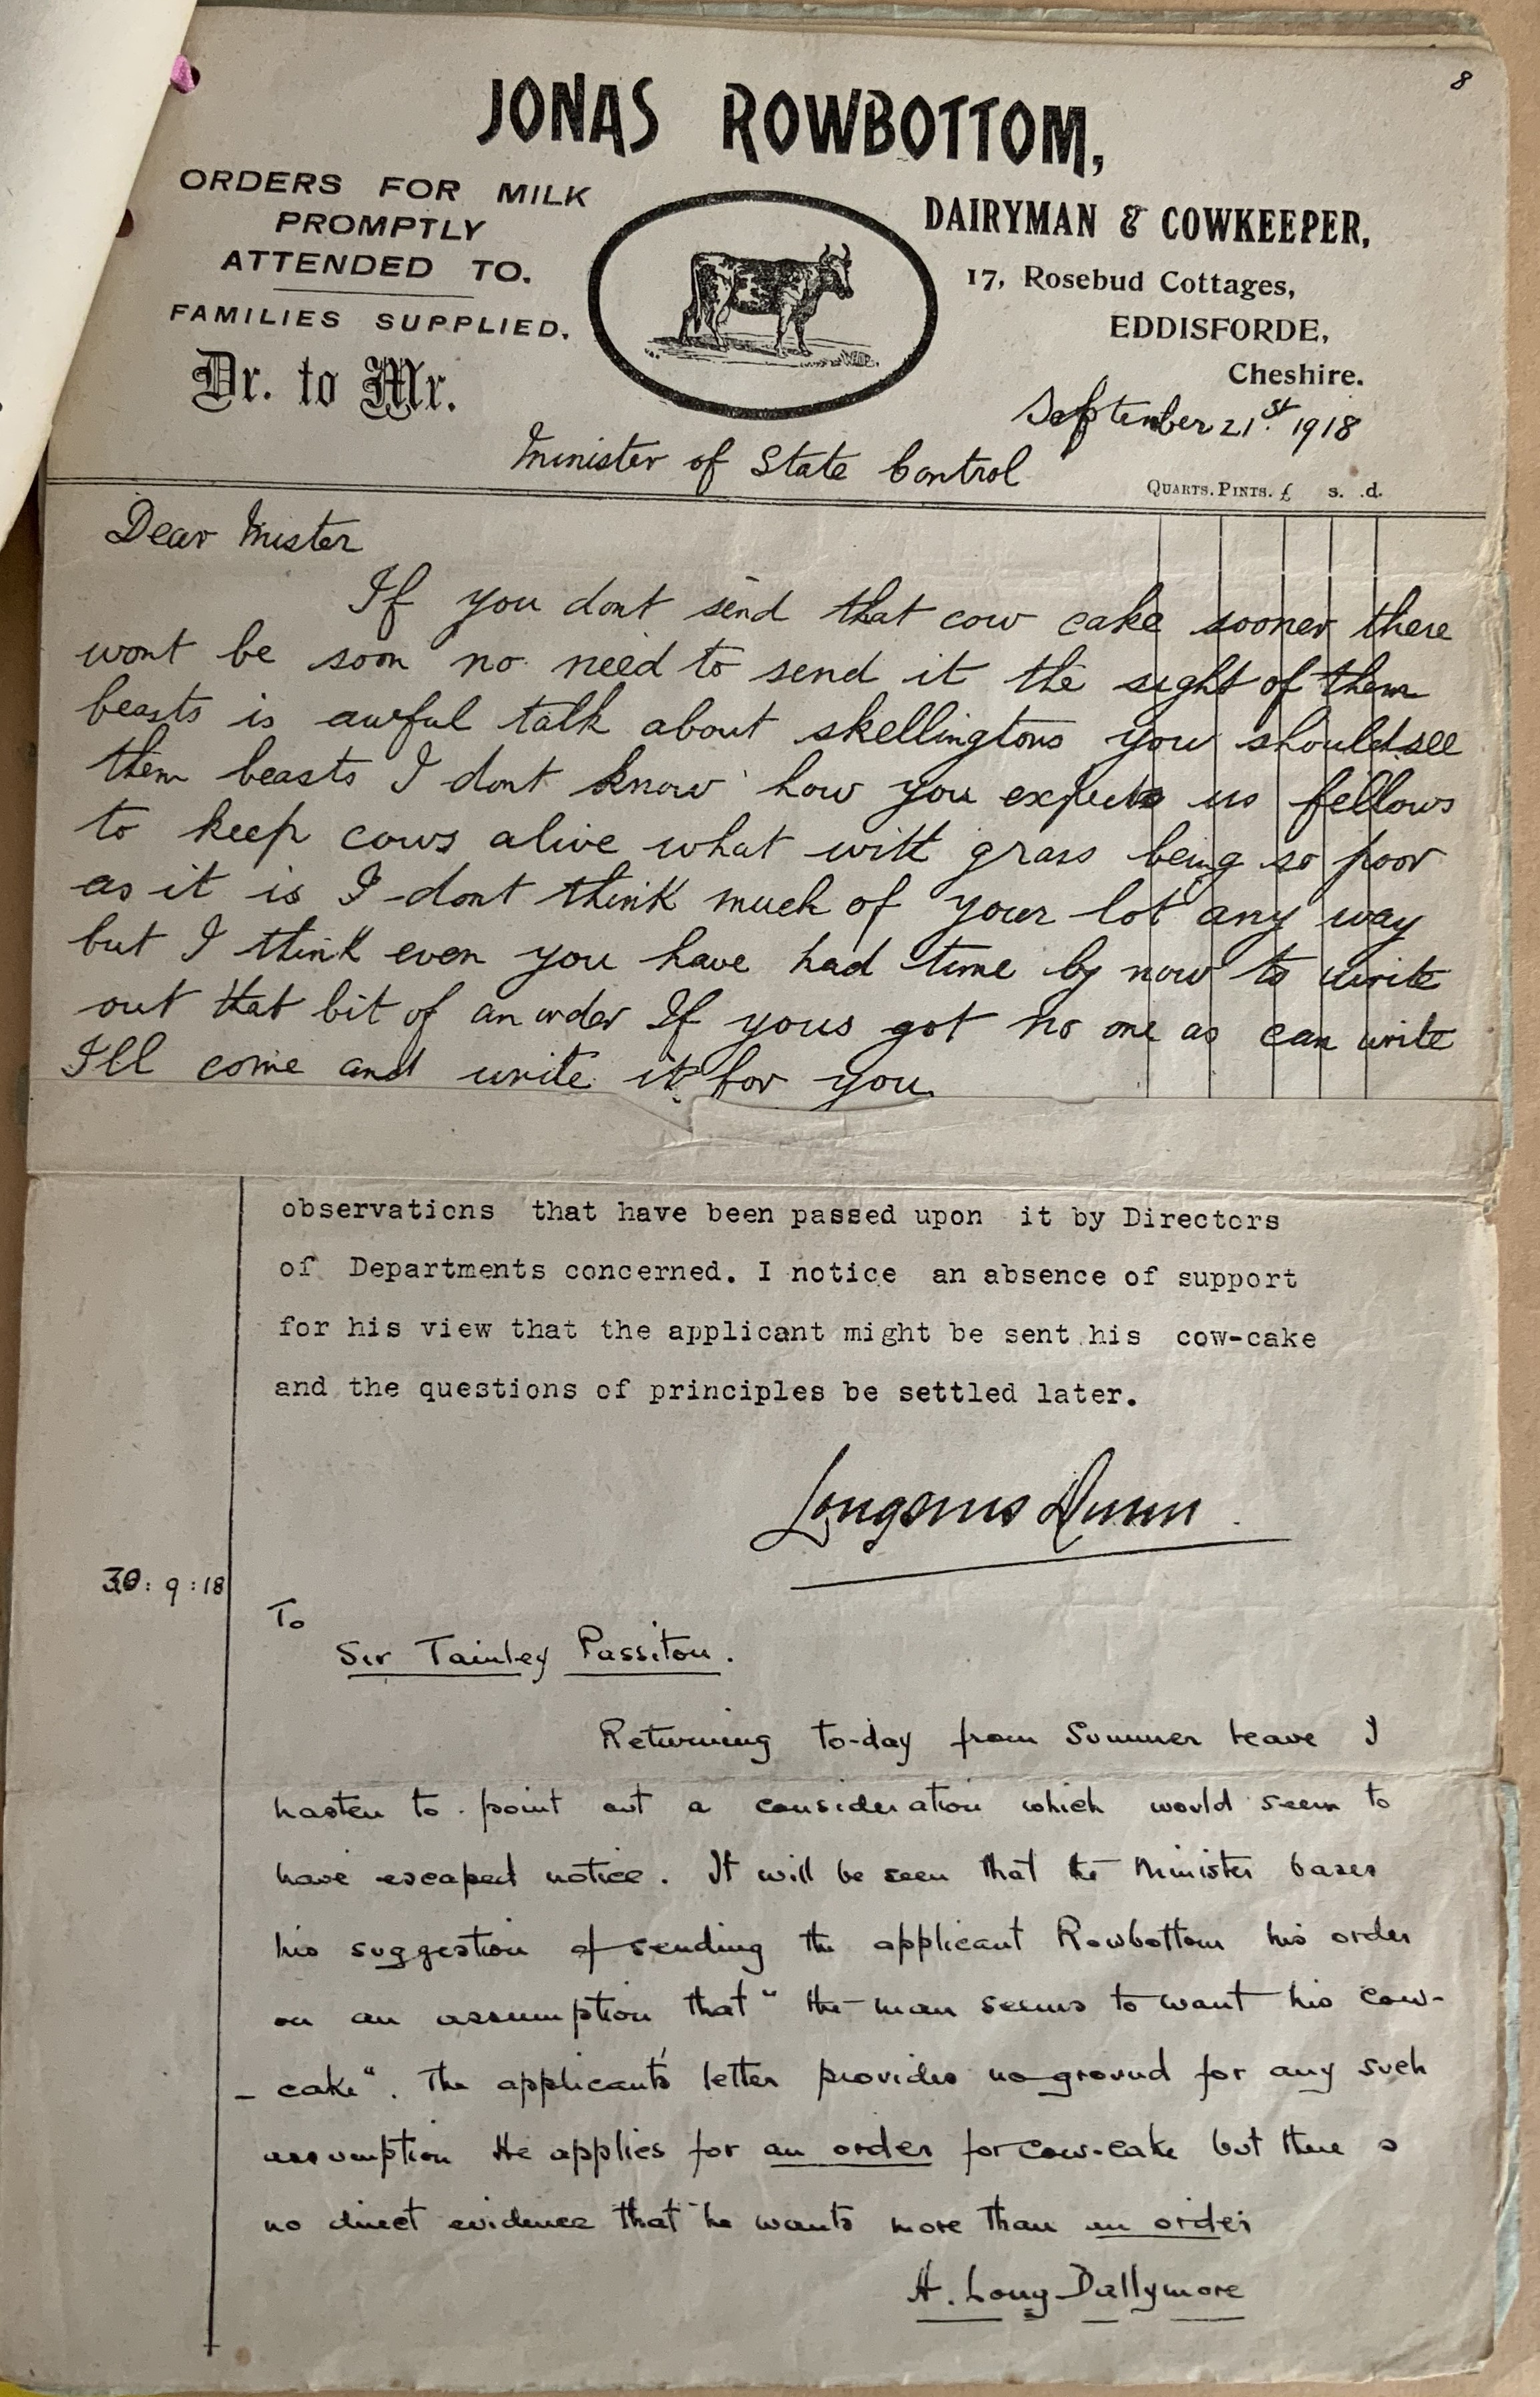 8
JONAS ROWBOTTOM,
ORDERS FOR MILK
PROMPTLY
ATTENDED TO.
FAMILIES SUPPLIED.
Dr. to Mr.
DAIRYMAN & COWKEEPER,
17, Rosebud Cottages,
EDDISFORDE,
Cheshire.
September 21st. 1918
Minister of State Control
QUARTS. PINTS. £ s. d.
Dear Mister
If you dont send that cow cake sooner there
wont be soon no need to send it the sight of them
beasts is awful talk about skellingtons you should see
them beasts I dont know how you expects us fellows
to keep cows alive what witt grass being so poor
as it is I dont think much of your lot any way
but I think even you have had time by now to write
out that bit of an order If yous got no one as can write
I'll come and write it for you.
observations that have been passed upon it by Directors
of Departments concerned. I notice an absence of support
for his view that the applicant might be sent his cow-cake
and the questions of principles be settled later.
Longanus Dunn.
30:9:18
To
Sir Tainley Passiton.
Returning to-day from Summer leave I
hasten to point out a consideration which would seem to
have escaped notice. It will be seen that the Minister bases
his suggestion of sending the applicant Rowbottom his order
on an assumption that "the man seems to want his cow-
-cake". The applicant's letter provides no ground for any such
assumption He applies for an order for cow-cake but there is
no direct evidence that he wants more than an order
H. Long-Dallymore